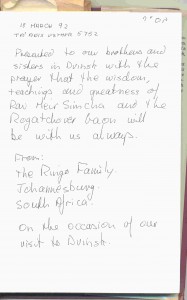 18 MARCH 92
Presented to our brothers and
sisters in Dvinsk with the
prayer that the wisdom,
teachings and greatness of
Rav Meir Simcha and the
Rogatchover Gaon will
be with us always.
From:
The Ringo Family.
Johannesburg.
South Africa.
On the occasion of our
visit to Dvinsk.